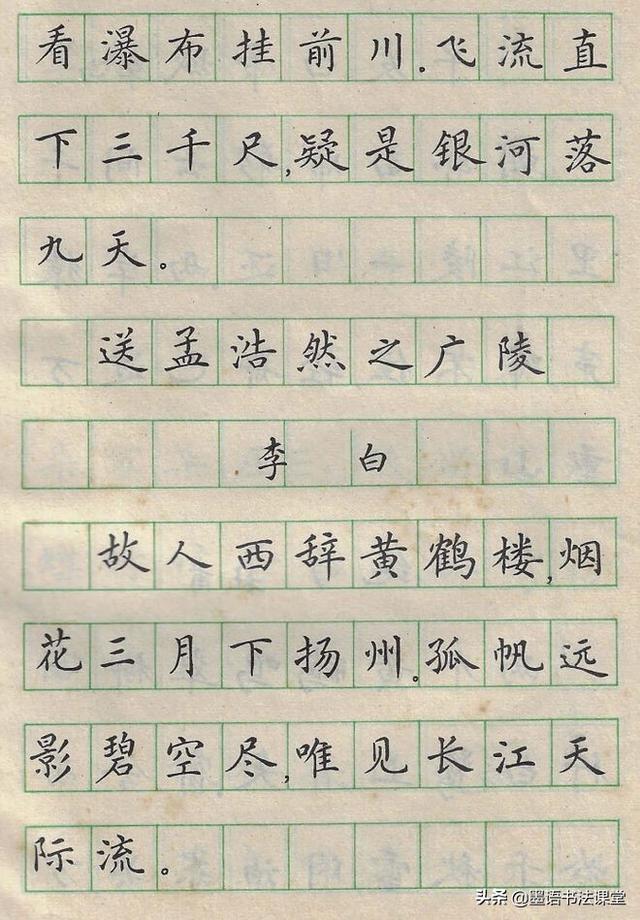 看瀑布挂前川。飞流直
下三千尺,疑是银河落
九天。
送孟浩然之广陵
李白
故人西辞黄鹤楼,烟
花三月下扬州。孤帆远
影碧空尽,唯见长江天
际流。
头条 @墨语书法课堂